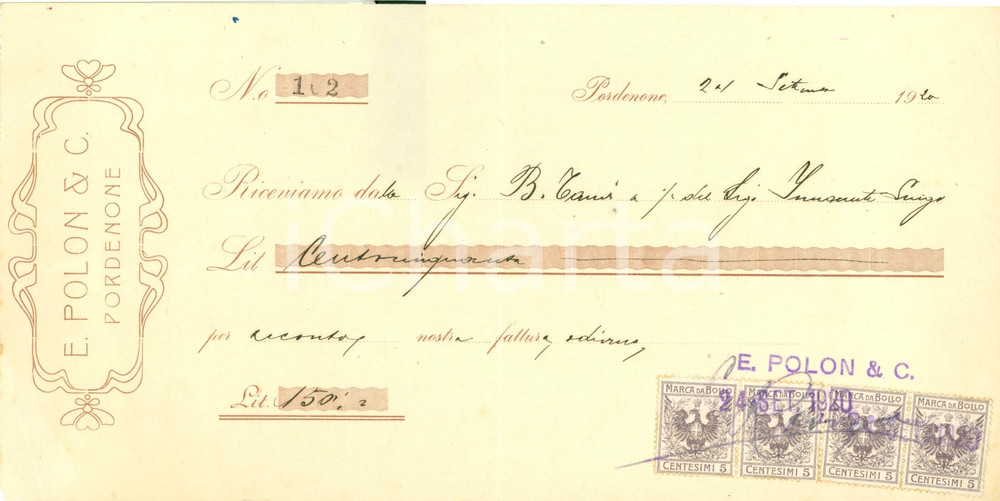 E. POLON & C.
PORDENONE
N.o 102
Pordenone, 24 1920
Riceviamo dalla Sig. B. a % del Sig.
Lit Centocinquanta
per acconto, nostra fattura, odierna,
Lit. 150.=
E. POLON & C.
24 SET. 1920
MARCA DA BOLLO MARCA DA BOLLO MARCA DA BOLLO MARCA DA BOLLO
CENTESIMI 5 CENTESIMI 5 CENTESIMI 5 CENTESIMI 5
iCharta